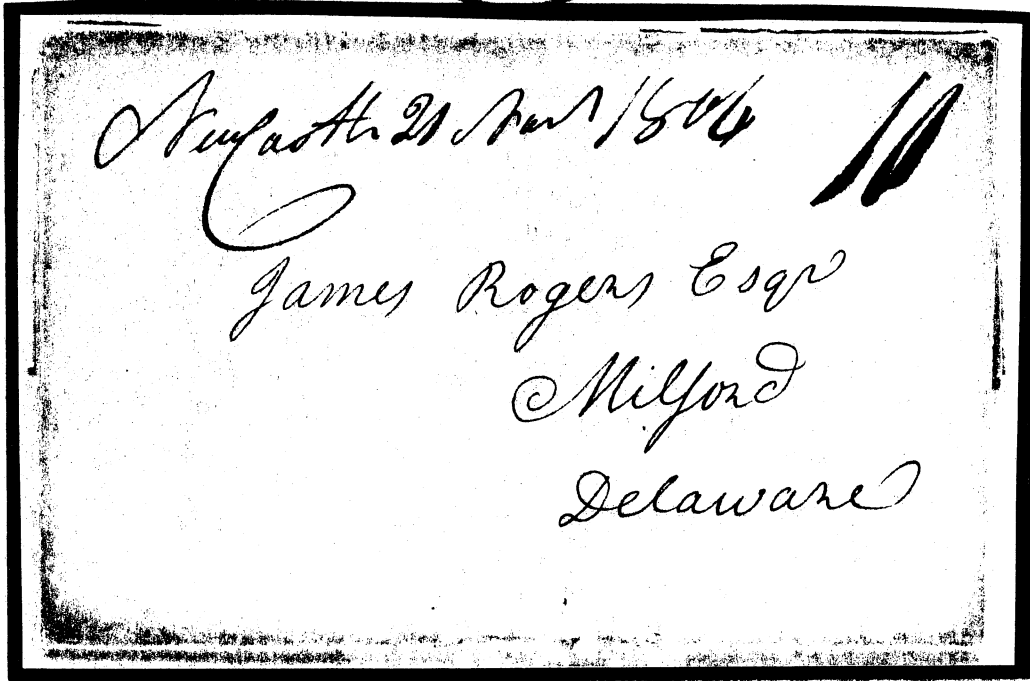 NewCastle 21 Nov 1804 10
James Rogers Esqr
Milford
Delaware